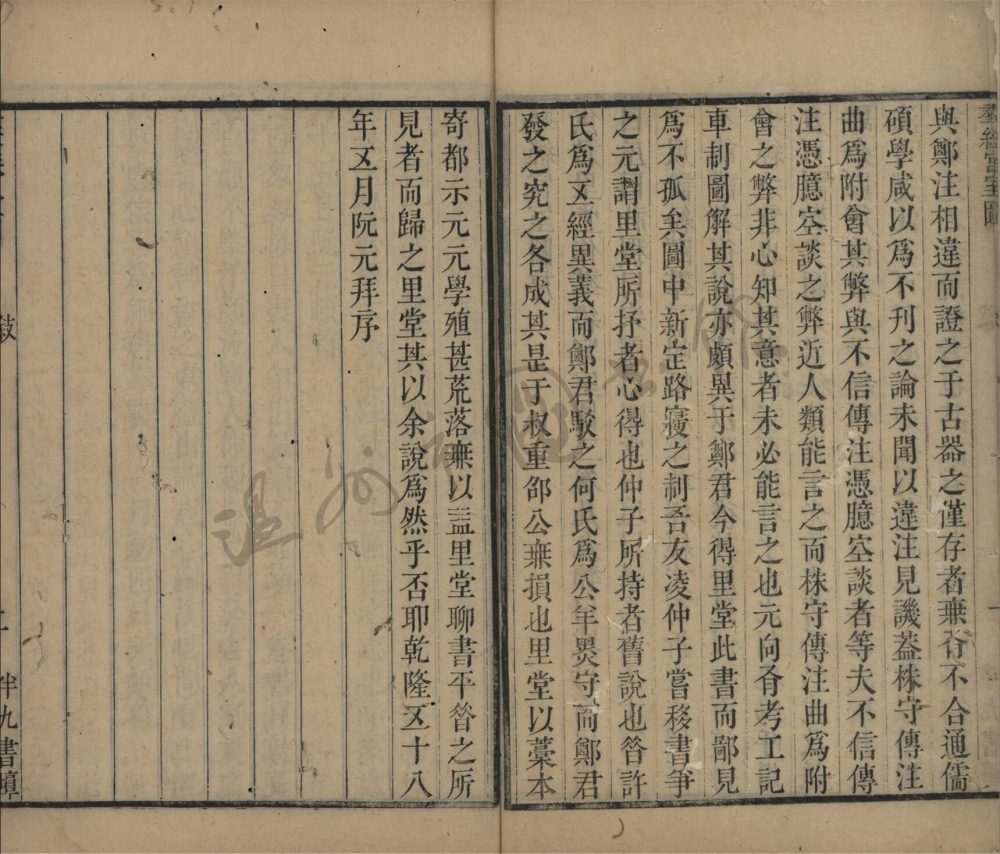 羣經宮室圖
與鄭注相違而證之于古器之僅存者無有不合通儒
碩學咸以爲不刊之論未聞以違注見譏葢株守傳注
曲爲附會其弊與不信傳注憑臆空談者等夫不信傳
注憑臆空談之弊近人類能言之而株守傳注曲爲附
會之弊非心知其意者未必能言之也元向有考工記
車制圖解其說亦頗異于鄭君今得里堂此書而鄙見
爲不孤矣圖中新定路寢之制吾友凌仲子嘗移書爭
之元謂里堂所抒者心得也仲子所持者舊說也昝許
氏爲五經異義而鄭君駁之何氏爲公羊墨守而鄭君
發之究之各成其是于叔重邵公無損也里堂以藁本
寄都示元元學殖甚荒落無以益里堂聊書平昝之所
見者而歸之里堂其以余說爲然乎否耶乾隆五十八
年五月阮元拜序
敍
二
半九書塾
溫州
圖